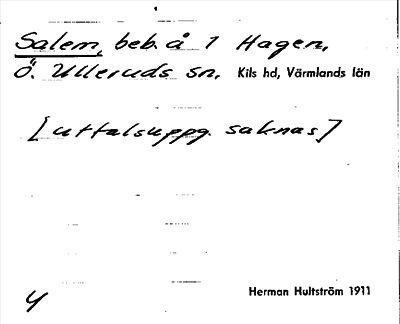 Salem, beb. å 1 Hagen,
Ö. Ulleruds sn, Kils hd, Värmlands län
[uttalsuppg. saknas]
Y
Herman Hultström 1911